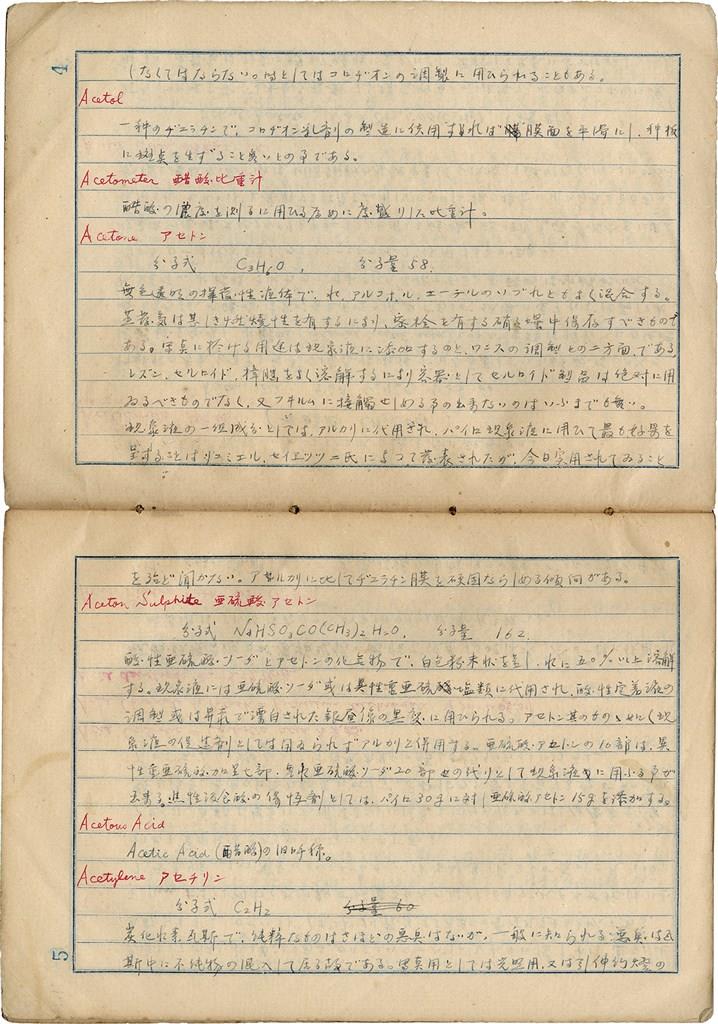 4
しなくてはならない。時としてはコロヂオンの調製に用ひられることもある。
Acetol
一種のヂェラチンで、コロヂオン乳剤の製造に使用すれば膜面を平滑にし、種板
に斑点を生ずること無いとの事である。
Acetometer 醋酸比重計
醋酸の濃度を測るに用ひる為めに度盛りした比重計。
Acetone アセトン
分子式 C3H6O , 分子量 58.
無色透明の揮発性液体で、水、アルコホル、エーテルのいづれともよく混合する。
其蒸気は甚しき燃焼性を有するにより、密栓を有する硝子壜中保存すべきもので
ある。写真に於ける用途は現象液に添加するのと、ワニスの調製との二方面である
レズン、セルロイド、棉膠をよく溶解するにより容器としてセルロイド製品は絶対に用
ゐるべきものでなく、又フヰルムに接触せしめる事の出来ないのはいふまでも無い。
現象液の一組成分としては、アルカリに代用され、パイロ現象液に用ひて最も好果を
呈することはリュミエル、セイエッツ二氏によつて発表されたが、今日実用されてゐること
を殆ど聞かない。アルカリに比してヂェラチン膜を硬固ならしめる傾向がある。
Aceton Sulphite 亜硫酸アセトン
分子式 NaHSO3CO(CH3)2H2O. 分子量 162.
酸性亜硫酸ソーダとアセトンの化合物で、白色粉末状を呈し、水に五〇%以上溶解
する。現象液には亜硫酸ソーダ或は異性重亜硫酸塩類に代用され、酸性定着液の
調製或は昇汞で漂白された銀画像の黒変に用ひられる。アセトン其のものゝ如く現
象液の促進剤としては用ゐられずアルカリと併用する。亜硫酸アセトンの10部は、異
性重亜硫酸加里七部、無水亜硫酸ソーダ20部の代りとして現象液に用ふる事が
出来る。焦性没食酸の保恒剤としては、パイロ30gに対し亜硫酸アセトン15gを添加する。
Acetous Acid
Acetic Acid (醋酸)の旧呼称。
Acetylene アセチリン
分子式 C2H2 分子量 60
炭化水素瓦斯で、純粋なものはさほどの悪臭はないが、一般に知られる悪臭は瓦
斯中に不純物の混入して居る故である。写真用としては光照用、又は引伸灼燈の
5